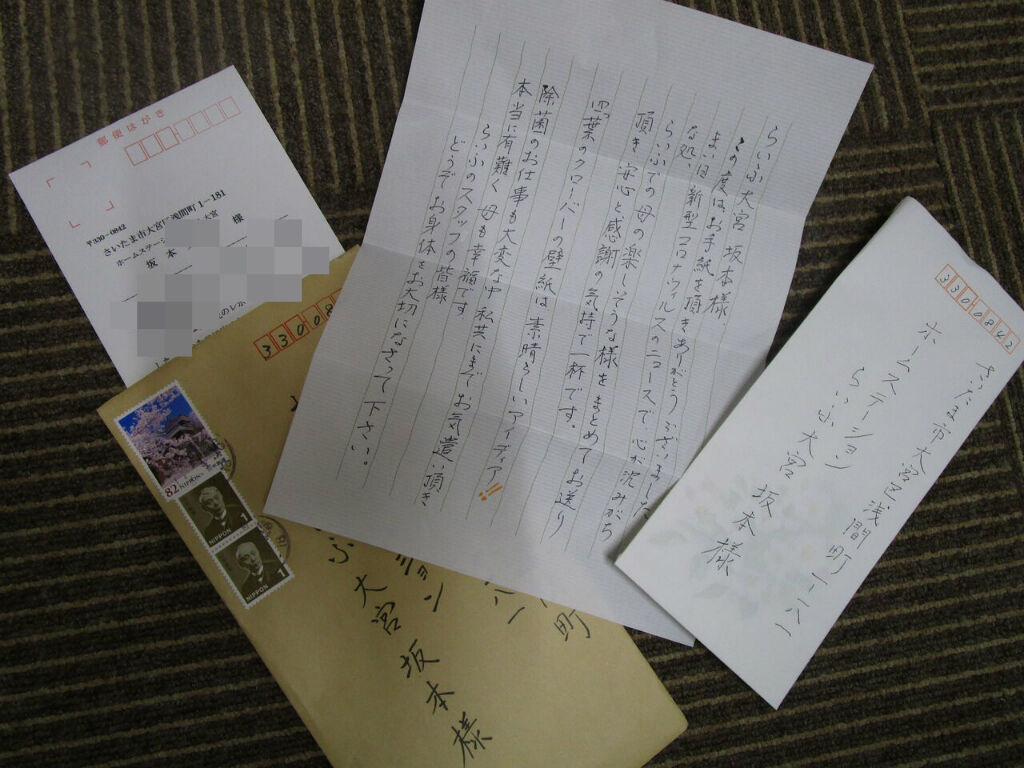 郵便はがき
〒330-0842
さいたま市大宮区浅間町1-181
ホームステーション
大宮
坂本
様
らいふ大宮 坂本様、
この度はお手紙を頂きありがとうございました
まいは新型コロナウィルスのニュースで心が沈みがち
な処、
らいふでの母の楽しそうな様をまとめてお送り
頂き安心と感謝の気持で一杯です。
四葉のクローバーの壁紙は素晴らしいアイディア!!
除菌のお仕事も大変な中私共にまでお気遣い頂き
本当に有難く母も幸福です
らいふのスタッフの皆様
どうぞお身体をお大切になさって下さい。
3300842
さいたま市大宮区浅間町一-一八一
ホームステーション
らいふ大宮 坂本様
33008
82 NIPPON
NIPPON 1
NIPPON 1
町
八一
ション
ふ 大宮 坂本様